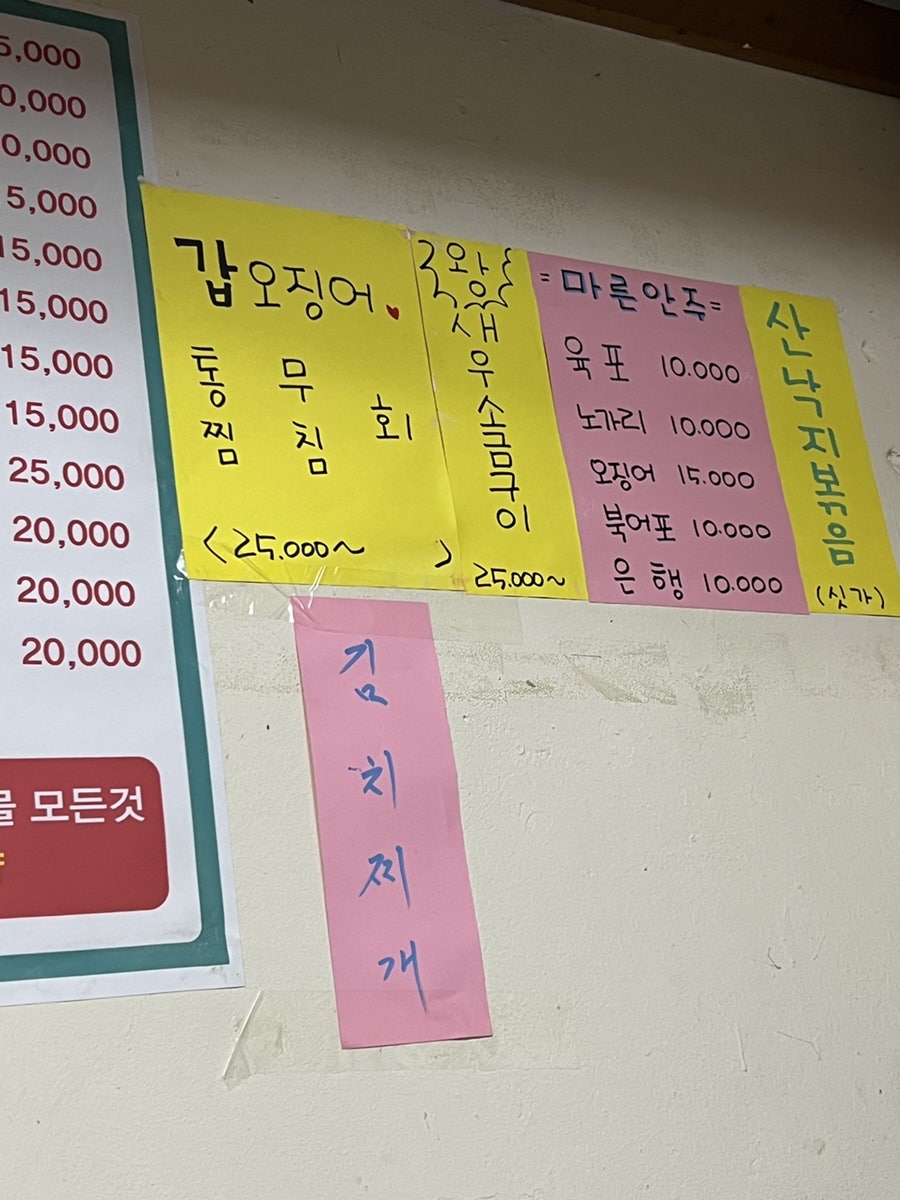 5,000
0,000
0,000
5,000
15,000
15,000
15,000
15,000
25,000
20,000
20,000
20,000
물 모든것
갑오징어
통찜 무침 회
<25.000~ >
왕새우소금구이
25.000~
=마른안주=
육포 10.000
노가리 10.000
오징어 15.000
북어포 10.000
은행 10.000
산낙지볶음
(싯가)
김치찌개